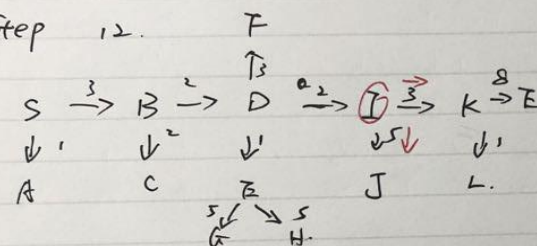 Step 12. F
↑3
S →3 B →2 D →2 I →3 K →8 E
↓1 ↓2 ↓1 ↓5 ↓ ↓1
A C E J L.
5↙ ↘5
G H.